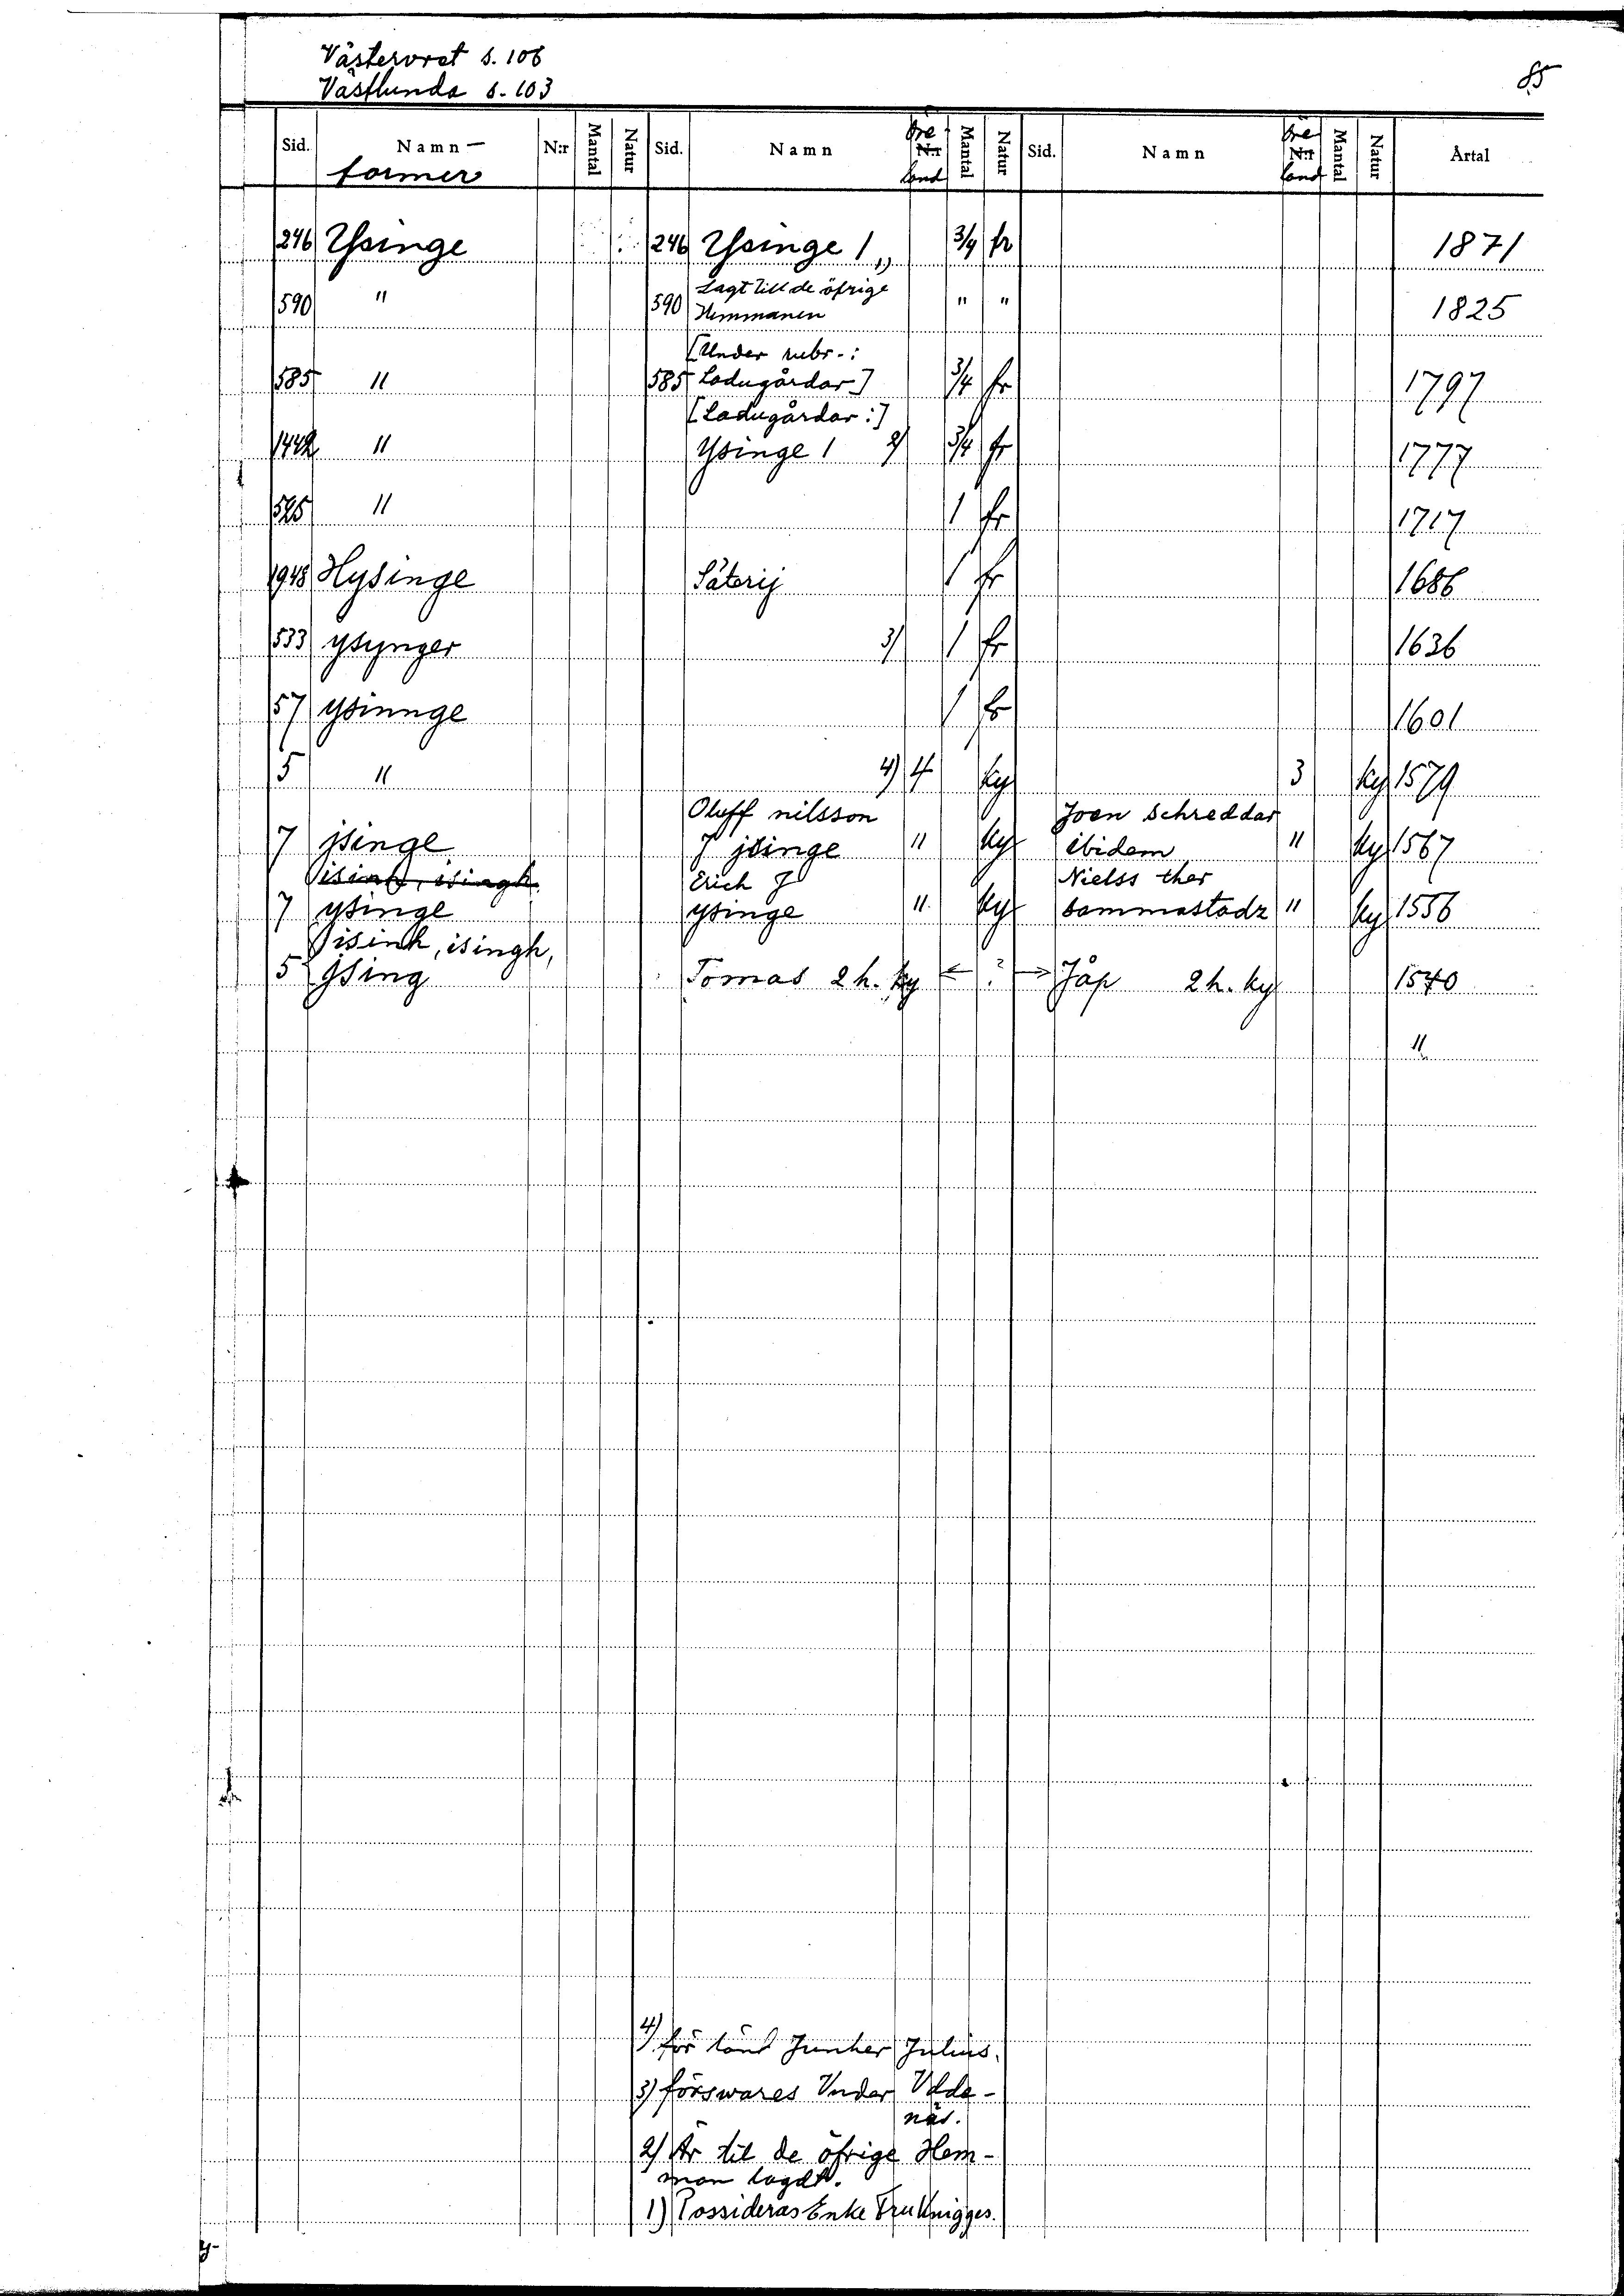 Västervret s. 106
Västlunda s. 103
85
Sid. Namn- N:r Mantal Natur Sid. Namn N:r Mantal Natur Sid. Namn N:r Mantal Natur Årtal
former Öre land Öre land
246 Ysinge 246 Ysinge 1 1) 3/4 fr 1871
590 " 590 Lagt till de öfrige " " 1825
Hemmanen
[Under rubr.:
585 " 585 Ladugårdar] 3/4 fr 1797
[Ladugårdar:]
1442 " Ysinge 1 2) 3/4 fr 1777
525 " 1 fr 1717
1948 Hysinge Säterij 1 fr 1686
533 ysynger 3) 1 fr 1636
57 ysinnge 1 fr 1601
5 " 4) 4 ky 3 ky 1579
Oluff nilsson Joen Schreddar
7 jsinge J jsinge " ky ibidem " ky 1567
isink, isingh Erich J Nielss ther
7 ysinge ysinge " ky sammastadz " ky 1556
isink, isingh,
5 jsing Tomas 2 h. ky ← ? → Jåp 2 h. ky 1540
"
4) för länt Junker Julius.
3) förswares Vnder Vdde-
näs.
2) Är til de öfrige Hem-
man lagdt.
1) Possideras Enke Fru Knigges.